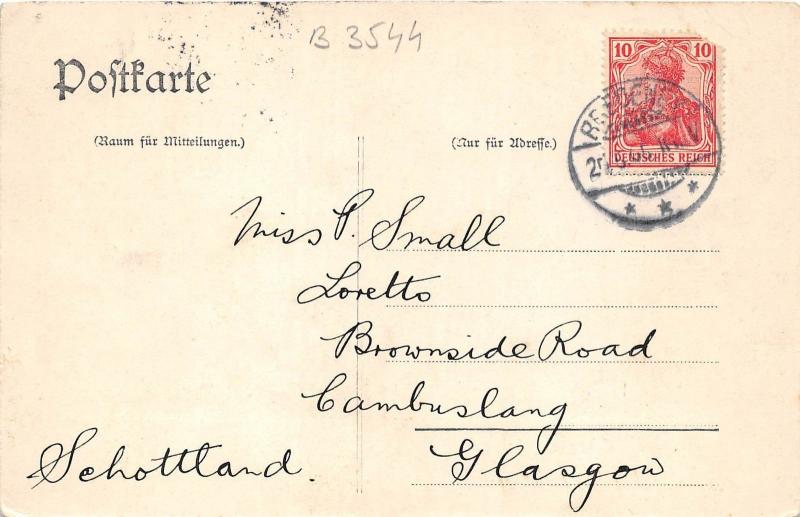 B 3544
Poſtkarte
(Raum für Mitteilungen.)
(Nur für Adreſſe.)
10 10
DEUTSCHES REICH
Miss P. Small
Loretto
Brownside Road
Cambuslang
Glasgow
Schottland.